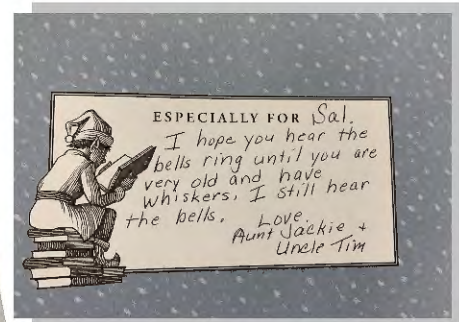 ESPECIALLY FOR Sal.
I hope you hear the
bells ring until you are
very old and have
whiskers. I still hear
the bells.
Love,
Aunt Jackie +
Uncle Tim